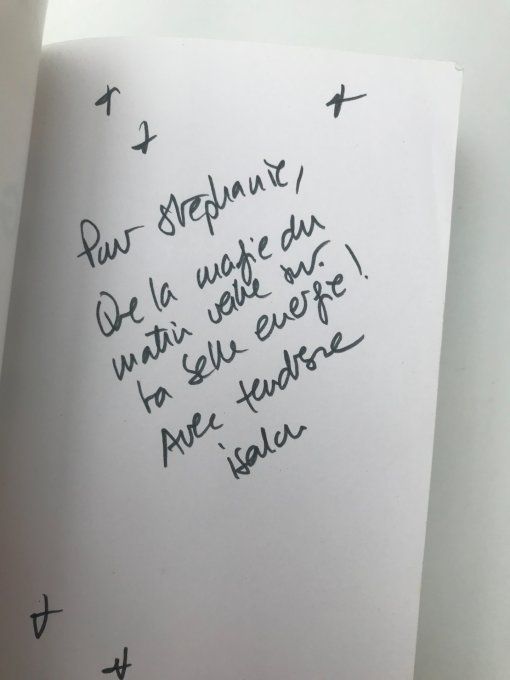 Pour Stéphanie,
Que la magie du
matin veille sur
ta belle energie!
Avec tendresse